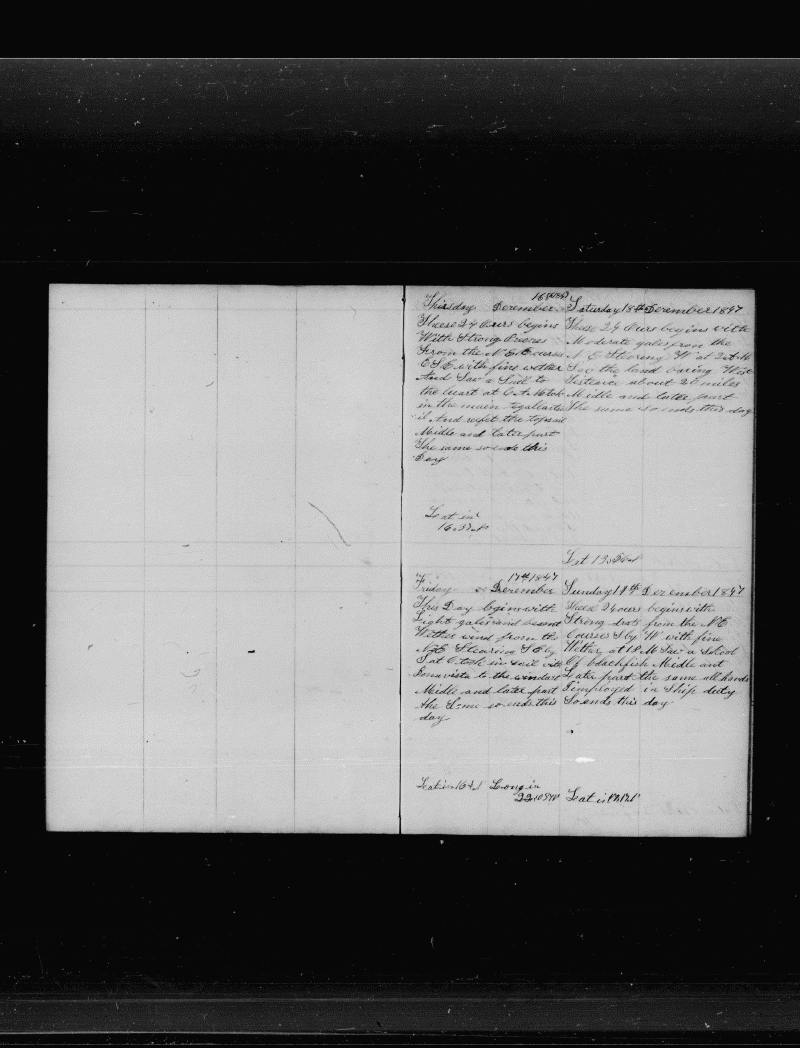 Thirsday December 16 1847
These 24 Ours begins
With Strong Brezes
From the N.E. Course
E S E with fine wether
And Saw a Sail to
the leuart at 6 A.M. tok
in the main
And reefet the topsail
Midle and later part
The same so ends this
Day
Lat in
16..53 N
Friday December 17th 1847
This Day begins with
Light gales and desent
Wether wind from the
NE Stearing S E by
S at 6 tok in sail with
Bonavista to the windart
Midle and later part
the Same so ends this
day
Lat in 16 Long in
22
Saturday 18th December 1847
These 24 Ours begins with
Moderate gales from the
N E Stearing W at 2 A.M
Saw the land baring West
distance about 20 miles
Midle and later part
The same so ends this day
Lat
Sunday 19th December 1847
These 24 ours begins with
Strong from the NE
Courses S by W with fine
Wether at 12 M Saw a School
Of blackfish Midle and
Later part the same all hands
Employed in Ship duty
So ends this day
Lat in